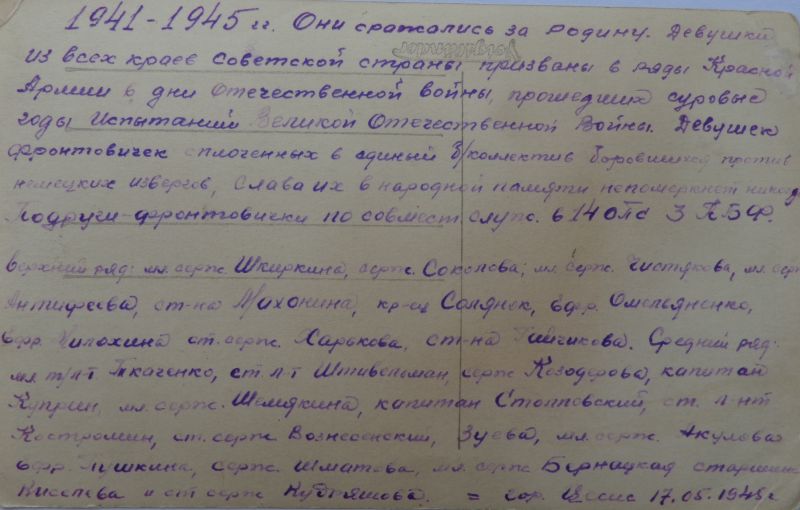 1941-1945 гг. Они сражались за Родину. Девушки
из всех краев советской страны призваны в ряды Красной
Армии в дни Отечественной войны, прошедших суровые
годы Испытаний Великой Отечественной Войны. Девушек
фронтовичек сплоченных в единый б/коллектив боровшихся против
немецких извергов, Слава их в народной памяти непомеркнет никогда
Подруги-фронтовички по совмест служ. в 14 ОПС 3 ПБФ.
Верхний ряд: мл. серж. Шкиркина, серж. Соколова; мл. серж. Чистякова, мл. серж
Антифеева, ст-на Михонина, кр-ец Солянок, ефр. Омельяненко,
ефр. ст. серж. Харькова, ст-на Средний ряд:
мл т/л-т Ткаченко, ст. л-т Штивельман, серж Козодерова, капитан
Куприн, мл. серж. Шемякина, капитан Столповский, ст. л-нт
Костромин, ст. серж Вознесенский, Зуева, мл. серж. Акулова
ефр. Пушкина, серж. Шматова, мл. серж Бернацкая старшина
Киселева и ст серж Кудряшова. = гор. 17.05.1945 г
Voigtländer